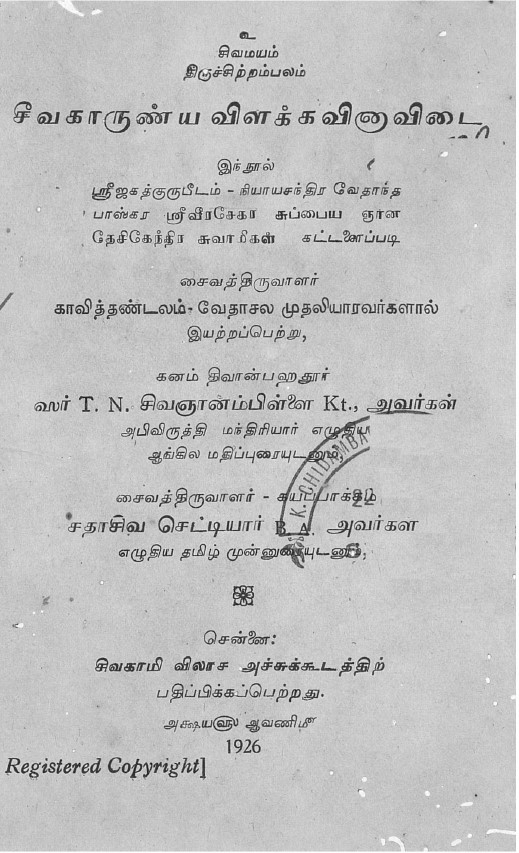 உ
சிவமயம்
திருச்சிற்றம்பலம்
சீவகாருண்ய விளக்கவினாவிடை
இந்நூல்
ஸ்ரீஜகத்குருபீடம் - நியாயசந்திர வேதாந்த
பாஸ்கர ஸ்ரீவீரசேகர சுப்பைய ஞான
தேசிகேந்திர சுவாமிகள் கட்டளைப்படி
சைவத்திருவாளர்
காவித்தண்டலம்- வேதாசல முதலியாரவர்களால்
இயற்றப்பெற்று,
கனம் திவான்பஹதூர்
ஸர் T. N. சிவஞானம்பிள்ளை Kt., அவர்கள்
அபிவிருத்தி மந்திரியார் எழுதிய
ஆங்கில மதிப்புரையுடனும்,
சைவத்திருவாளர் - சுயப்பாக்கம்
சதாசிவ செட்டியார் B. A. அவர்கள்
எழுதிய தமிழ் முன்னுரையுடனும்,
K. CHIDAMBA
சென்னை:
சிவகாமி விலாச அச்சுக்கூடத்திற்
பதிப்பிக்கப்பெற்றது.
அக்ஷயளு ஆவணிமீ
1926
Registered Copyright]